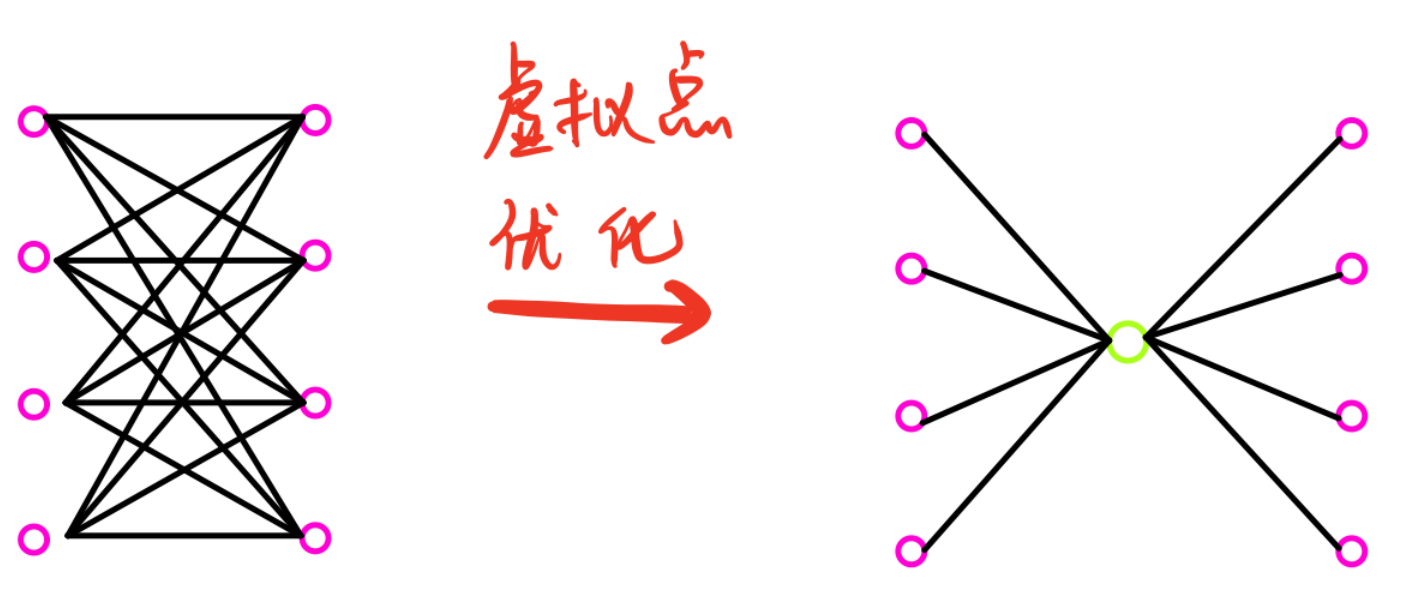 虚拟点
优化